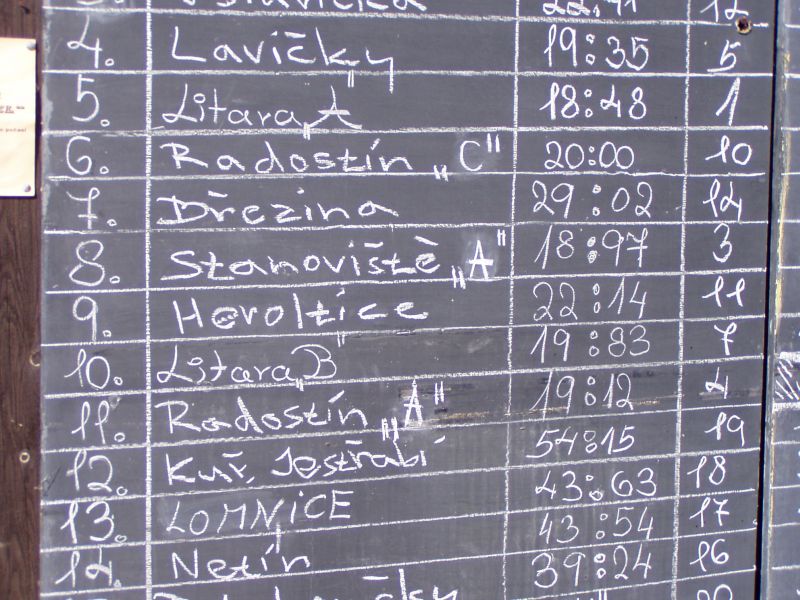 4. Lavičky 19:35 5
5. Litara "A" 18:48 1
6. Radostín "C" 20:00 10
7. Březina 29:02 14
8. Stanoviště "A" 18:97 3
9. Heroltice 22:14 11
10. Litara "B" 19:83 7
11. Radostín "A" 19:12 4
12. Kuř. Jestřabí 54:15 19
13. LOMNICE 43:63 18
14. Netín 43:54 17
39:24 16